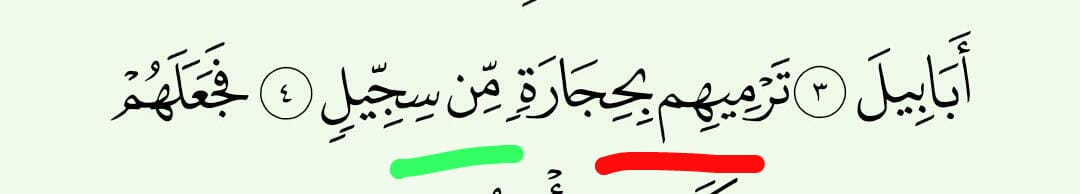 أَبَابِيلَ ٣ تَرْمِيهِم بِحِجَارَةٍ مِّن سِجِّيلٍ ٤ فَجَعَلَهُمْ